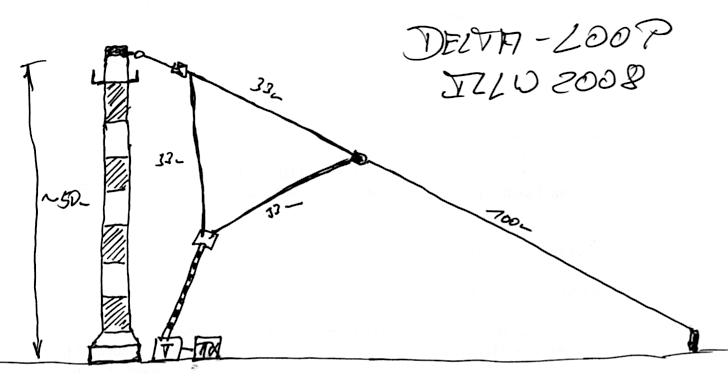 DELTA-LOOP
ILLW 2008
33m
33m
~50m
33m
100m
T
TRX